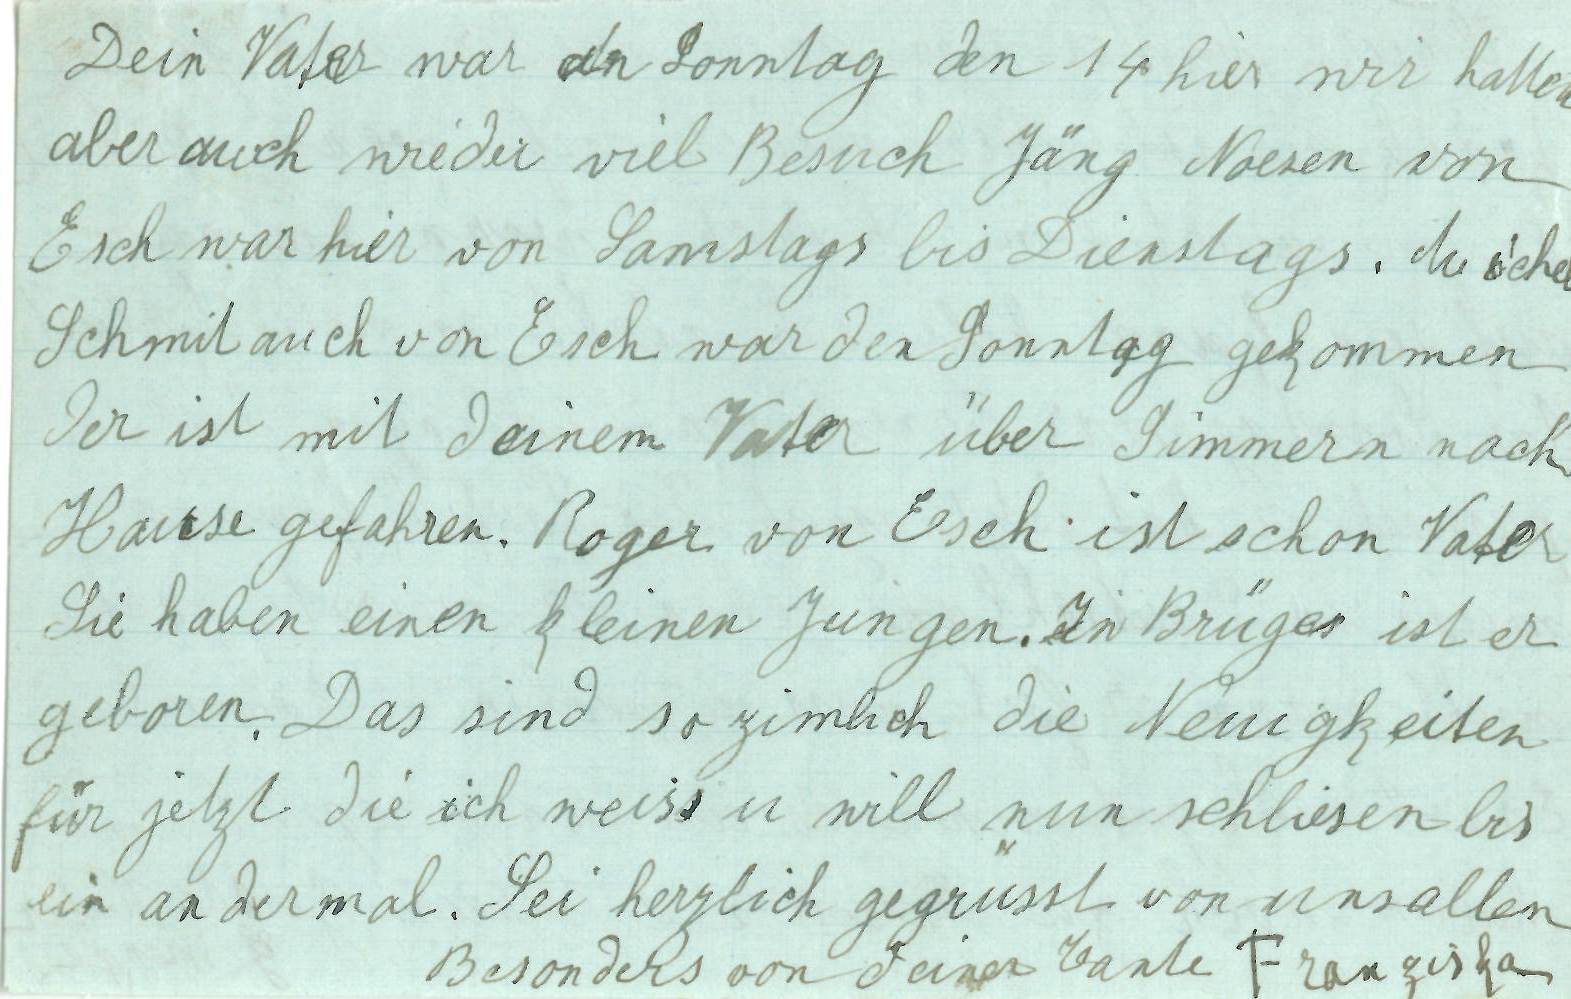 Dein Vater war an Sonntag den 14 hier wir hatten
aber auch wieder viel Besuch Jäng Noesen von
Esch war hier von Samstags bis Dienstags.
Schmit auch von Esch war den Sonntag gekommen
der ist mit deinem Vater über Simmern nach
Hause gefahren. Roger von Esch ist schon Vater
Sie haben einen kleinen Jungen. In Brüges ist er
geboren. Das sind so zimlich die Neuigkeiten
für jetzt die ich weiss u will nun schliesen bis
ein andermal. Sei herzlich gegrüsst von uns allen
Besonders von deiner Tante Franziska